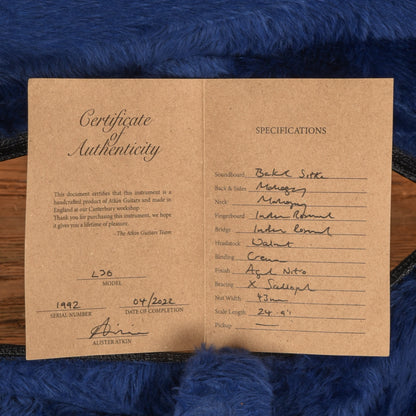 Certificate
of
Authenticity
This document certifies that this instrument is a
handcrafted product of Atkin Guitars and made in
England at our Canterbury workshop.
Thank you for purchasing this instrument, we hope
it gives you a lifetime of pleasure.
–The Atkin Guitars Team
L36
MODEL
1992 04/2022
SERIAL NUMBER DATE OF COMPLETION
ALISTER ATKIN
SPECIFICATIONS
Soundboard Baked Sitka
Back & Sides Mahogany
Neck Mahogany
Fingerboard Indian Rosewood
Bridge Indian Rosewood
Headstock Walnut
Binding Cream
Finish Aged Nitro
Bracing X Scalloped
Nut Width 43mm
Scale Length 24.9"
Pickup —